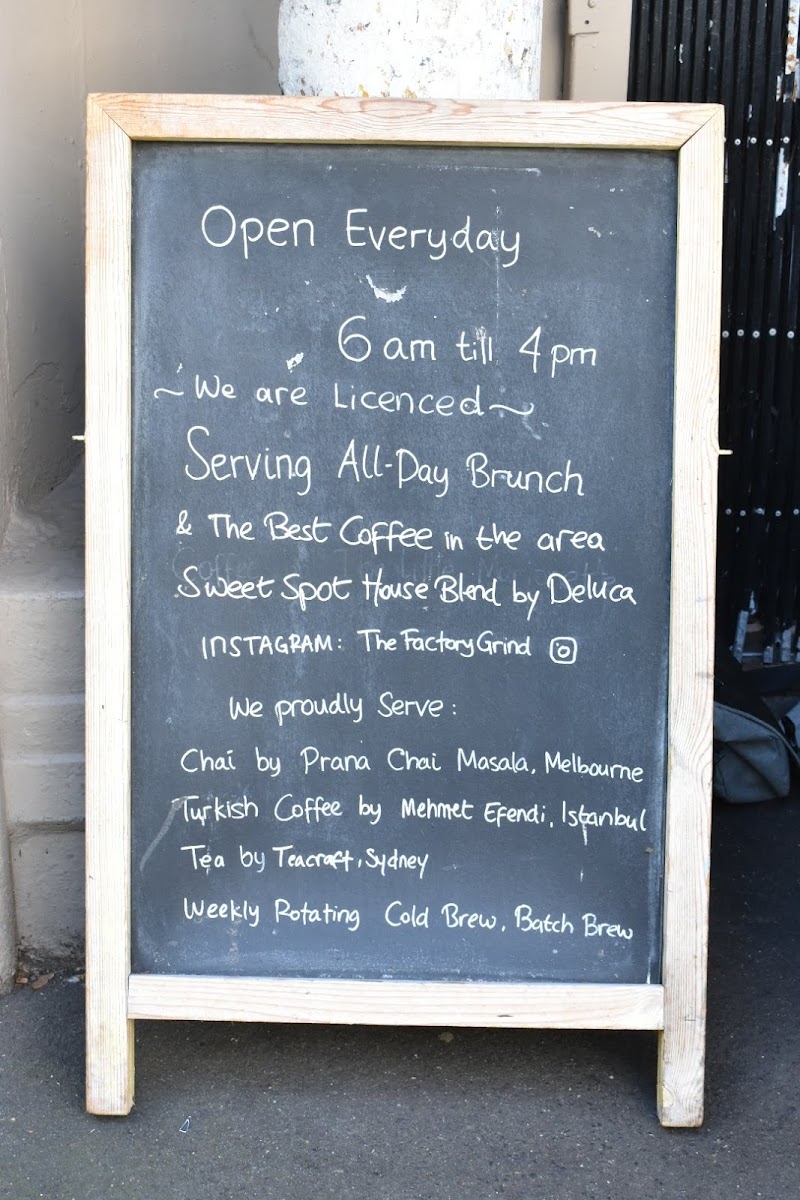 Open Everyday
6am till 4pm
~We are Licenced~
Serving All-Day Brunch
& The Best Coffee in the area
Sweet Spot House Blend by Deluca
INSTAGRAM: TheFactoryGrind
We proudly Serve:
Chai by Prana Chai Masala, Melbourne
Turkish Coffee by Mehmet Efendi, Istanbul
Tea by Teacraft, Sydney
Weekly Rotating Cold Brew, Batch Brew